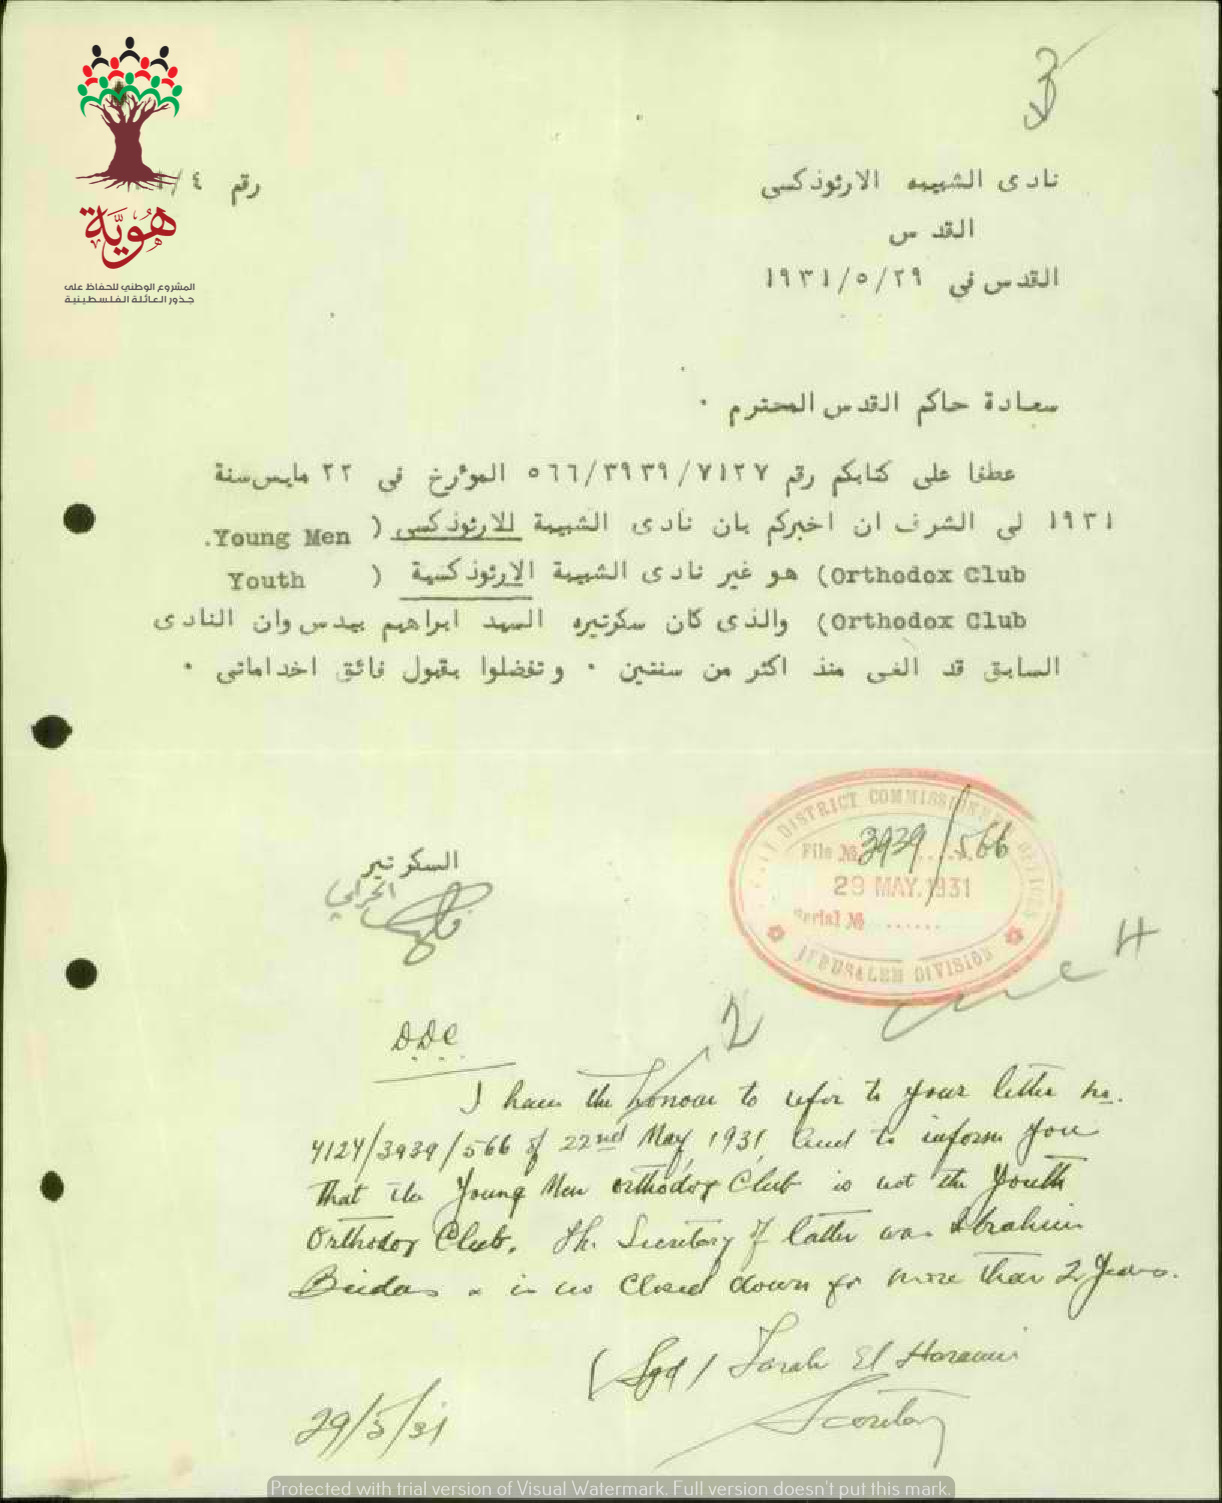 هوية
المشروع الوطني للحفاظ على
جذور العائلة الفلسطينية
نادى الشبيبه الارثوذكسى
رقم ٤/
القدس
القدس فى ٢٩/٥/١٩٣١
سعادة حاكم القدس المحترم ٠
عطفا على كتابكم رقم ٧١٢٧/٣٩٣٩/٥٦٦ الموٴرخ فى ٢٢ مايس سنة
١٩٣١ لى الشرف ان اخبركم بان نادى الشبيبة الارثوذكسى ( Young Men.
Orthodox Club) هو غير نادى الشبيبة الارثوذكسية ( Youth
Orthodox Club) والذى كان سكرتيره السيد ابراهيم بيدس وان النادى
السابق قد الغى منذ اكثر من سنتين ٠ وتفضلوا بقبول فائق احتراماتى ٠
السكرتير
DISTRICT COMMISSIONER'S OFFICES
File No. 3939/566
29 MAY. 1931
Serial No ......
JERUSALEM DIVISION
D.D.C.
2
I have the honour to refer to your letter no.
4124/3939/566 of 22nd May 1931 and to inform you
that the Young Men orthodox Club is not the Youth
Orthodox Club. Th. Secretary of latter was Ibrahim
Beidas & is closed down for more than 2 years.
(Sgd) Farah El Harami
Secretary
29/5/31
Protected with trial version of Visual Watermark. Full version doesn't put this mark.